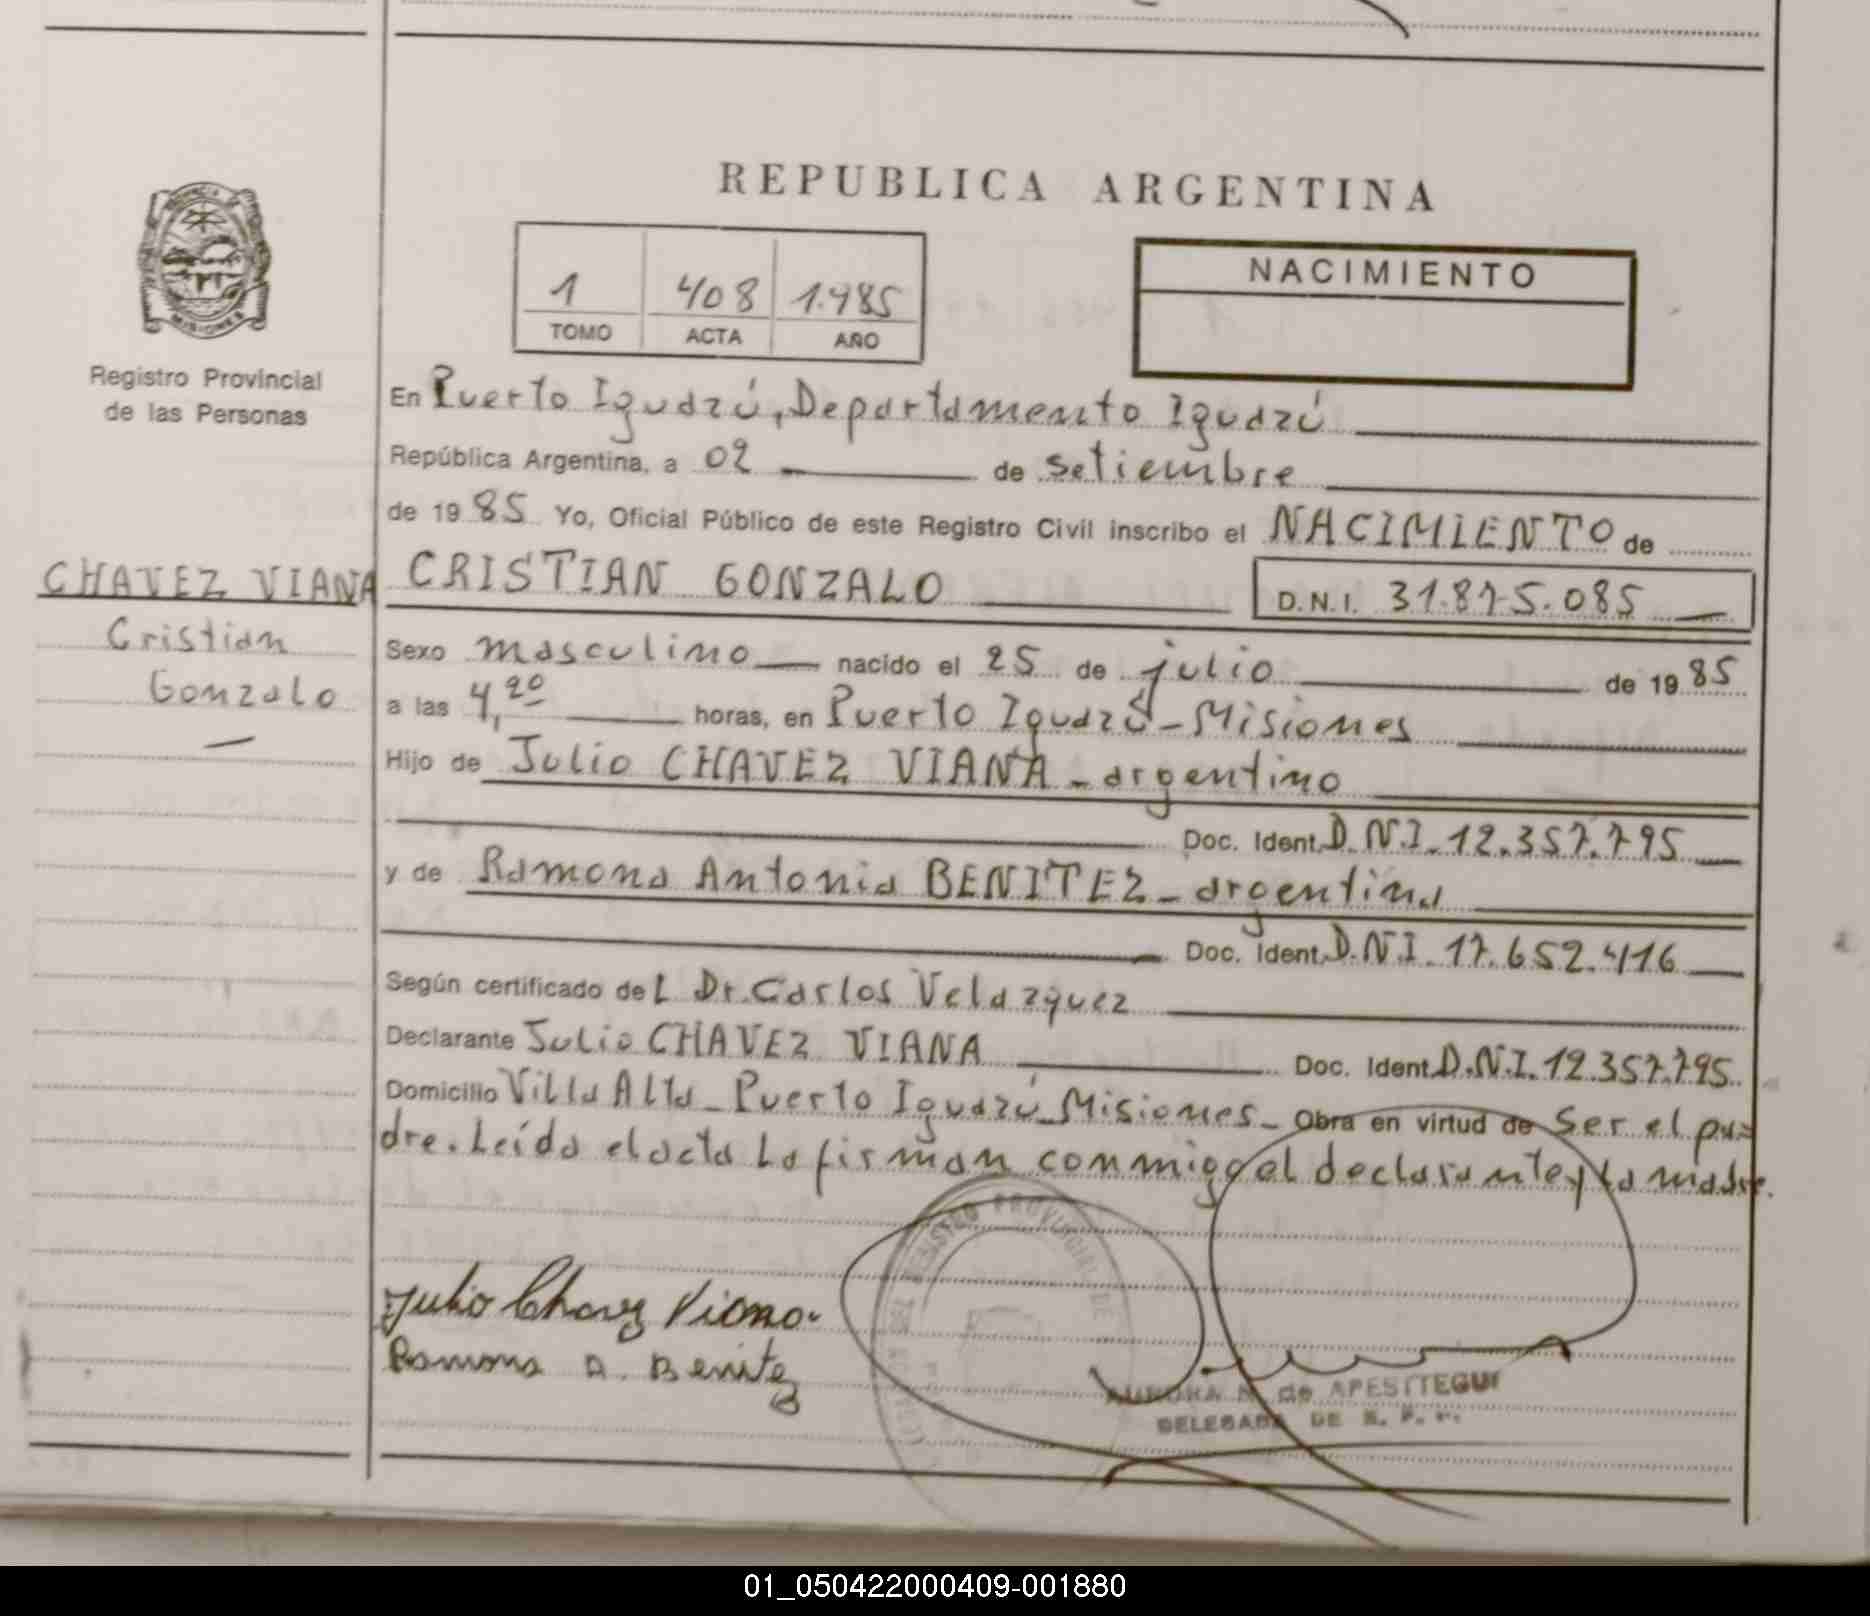 REPUBLICA ARGENTINA
PROVINCIA
MISIONES
Registro Provincial
de las Personas
1 408 1.985
TOMO ACTA AÑO
NACIMIENTO
En Puerto Iguazú, Departamento Iguazú
República Argentina, a 02 de setiembre
de 1985 Yo, Oficial Público de este Registro Civil inscribo el NACIMIENTO de
CHAVEZ VIANA
Cristian
Gonzalo
CRISTIAN GONZALO D.N.I. 31.875.085
Sexo masculino nacido el 25 de julio de 1985
a las 4,20 horas, en Puerto Iguazú - Misiones
Hijo de Julio CHAVEZ VIANA - argentino
Doc. Ident. D.N.I. 12.357.795
y de Ramona Antonia BENITEZ - argentina
Doc. Ident. D.N.I. 17.652.416
Según certificado del Dr. Carlos Velazquez
Declarante Julio CHAVEZ VIANA Doc. Ident. D.N.I. 12.357.795
Domicilio Villa Alta - Puerto Iguazú - Misiones - Obra en virtud de Ser el pa=
dre. Leída el acta la firman conmigo el declarante y la madre.
REGISTRO PROVINCIAL DE
Julio Chavez Viana.
Ramona A. Benitez
AURORA N. de APESTTEGUI
DELEGADA DE R. P. P.
01_050422000409-001880